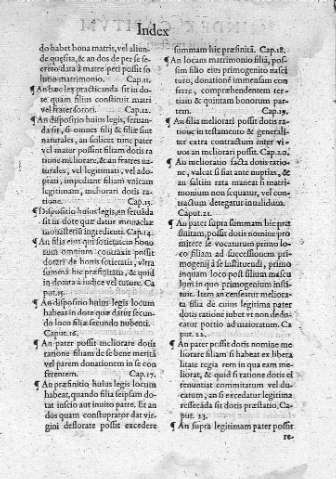 Index
do habet bona matris, vel alien-
de quęsita, & an dos de per se
data à matre peti possit so-
luto matrimonio. Cap.11.
¶ An hæc lex practicanda sit in do-
te quam filius constituit matri
vel fratri sorori. Cap.12.
¶ An dispositio huius legis, seruan-
da sit, si omnes filij & filiæ sint
naturales, an scilicet tunc pater
vel mater possint filiam dotis ra
tione meliorare, & an fratres na-
turales, vel legitimati, vel ado-
ptati, impediant filiam vnicam
legitimam, meliorari dotis ra-
tione. Cap.13.
¶ Dispositio huius legis, an seruãda
sit in dote quæ datur monachæ
monasterium ingrediẽti. Cap.14.
¶ An filia
omnium contraxit possit
dotari de bonis vltra
summã hic præfinitã, & quid
in dotata à iudice vel tutore. Ca
put.15.
¶ An dispositio huius legis locum
habeat in dote quæ datur secun-
do loco filiæ secundo nubenti.
Caput.16.
¶ An pater possit meliorare dotis
ratione filiam de se bene meritã
vel parem donationem in se con
ferentem. Cap.17.
¶ An præfinitio huius legis locum
habeat, quando filia seipsam do-
tat inscio aut inuito patre. Et an
dos quam constuprator dat vir-
gini defloratæ possit excedere
summam hic præfinitã. Cap.18.
¶ An locans matrimonio filiã, pos-
sim filio eius primogenito nasci
turo, donationẽ immensam con
ferre, comprehendentem ter-
tium & quintam bonorum par-
tem. Cap.19.
¶ An filia meliorari possit dotis ra-
tione in testamento & generali-
ter extra contractum inter vi-
uos an meliorari possit. Cap.20.
¶ An melioratio facta dotis ratio-
ne, valeat si fiat ante nuptias, &
an saltim rata maneat si matri-
monium non sequatur, vel con-
tractus detegatur inualidus.
Caput.21.
¶ An pater supra summam hic præ
finitam, possit dotis nomine pro
mittere se vocaturum primo lo-
co filiam ad successionem pri-
mogenij à se instituendi, primo
inquam loco post filium mascu
lum in quo primogenium insti-
tuit. Item an censeatur meliora-
ta filia de cuius legitima pater
dotis ratione iubet vt non dedu-
catur portio ad maioratum. Ca
put. 22.
¶ An pater possit dotis nomine me
liorare filiam si habeat ex libera
litate regia rem in qua eam me-
liorat, & quid si ratione dotis el
renuntiat commitatum vel du-
catum, an si excedatur legitima
rescẽdẽda sit dotis præstatio, Ca
put. 23.
¶ An supra legitimam pater possit
re-